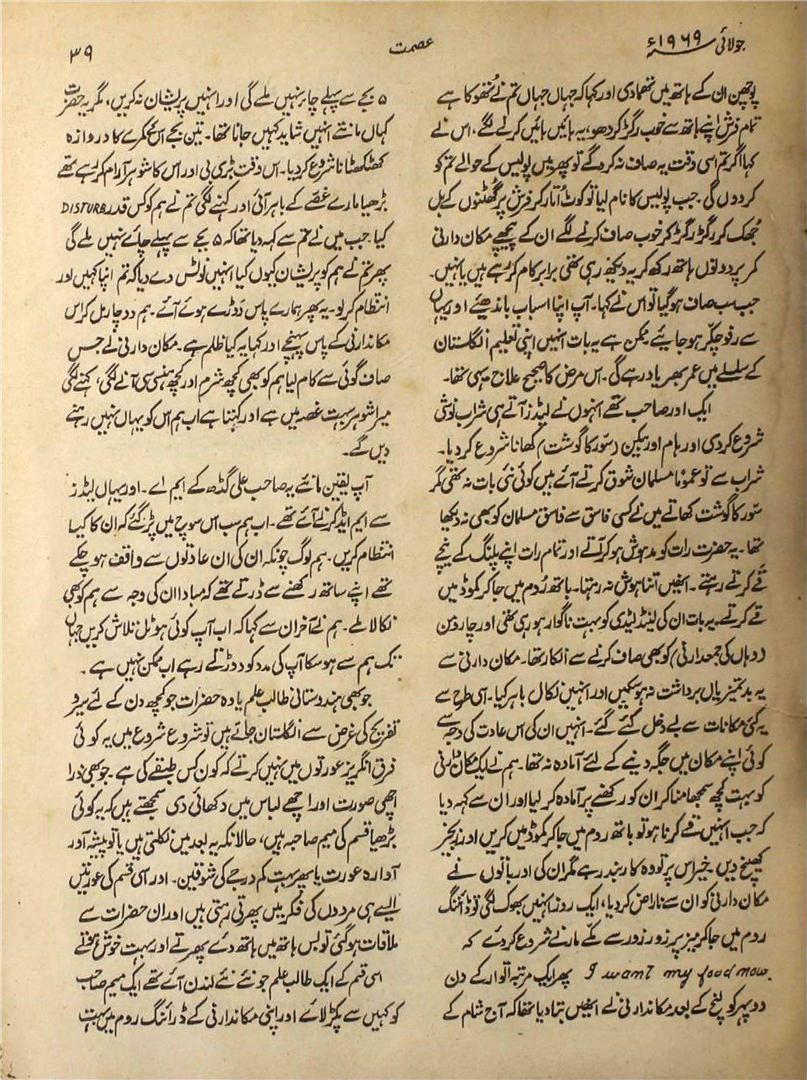 جولائی ۱۹۶۹ء
عصمت
۳۹
پوچھن ان کے ہاتھ میں تھمادی اور کہا کہ جہاں جہاں تم نے تھوکا ہے
تمام فرش اپنے ہاتھ سے خوب رگڑ کر دھو، یہ بائیں بائیں کرنے لگے، اس نے
کہا اگر تم اسی وقت یہ صاف نہ کرو گے تو پھر میں پولیس کے حوالے تم کو
کردوں گی۔ جب پولیس کا نام لیا تو کوٹ اُتار کر فرش پر گھٹنوں کے بل
جُھک کر رگڑ رگڑ کر خوب صاف کرنے لگے ان کے پیچھے مکان دارنی
کمر پر دونوں ہاتھ رکھ کر یہ دیکھ رہی تھی برابر کام کررہے ہیں یا نہیں۔
جب سب صاف ہوگیا تو اس نے کہا۔ آپ اپنا اسباب باندھیئے اور یہاں
سے رفو چکر ہو جایئے ممکن ہے یہ بات انہیں اپنی تعلیم انگلستان
کے سلسلے میں عمر بھر یاد رہے گی۔ اس مرض کا صحیح علاج یہی تھا۔
ایک اور صاحب تھے انہوں نے لیڈز آتے ہی شراب نوشی
شروع کردی اور ہام اور بیکن (سور کا گوشت) کھانا شروع کردیا۔
شراب سے تو عموماً مسلمان شوق کرتے آئے ہیں کوئی نئی بات نہ تھی مگر
سور کا گوشت کھاتے میں نے کسی فاسق سے فاسق مسلمان کو بھی نہ دیکھا
تھا۔ یہ حضرت رات کو مدہوش ہو کر آتے اور تمام رات اپنے پلنگ کے نیچے
قے کرتے رہتے۔ انھیں اتنا ہوش نہ رہتا۔ باتھ رُوم میں جاکر کموڈ میں
قے کرتے۔ یہ بات ان کی لینڈ لیڈی کو بہت ناگوار ہو رہی تھی اور چارومن
(وہاں کی جمعدارنی) کو بھی صاف کرنے سے انکار تھا۔ مکان دارنی سے
یہ بدتمیزیاں برداشت نہ ہوسکیں اور انہیں نکال باہر کیا۔ اسی طرح سے
یہ کئی مکانات سے بے دخل کئے گئے۔ انہیں ان کی اس عادت کی وجہ سے
کوئی اپنے مکان میں جگہ دینے کے لئے آمادہ نہ تھا۔ ہم نے ایک مکان دارنی
کو بہت کچھ سمجھا منا کر ان کو رکھنے پر آمادہ کرلیا اور ان سے کہہ دیا
کہ جب انہیں قے کرنا ہو تو باتھ روم میں جاکر کموڈ میں کریں اور زنجیر
کھینچ دیں۔ خیر اس پر تو وہ کاربند رہے مگر ان کی اور باتوں نے
مکان دارنی کو ان سے ناراض کردیا، ایک روز انہیں بھوک لگی تو ڈائننگ
روم میں جاکر میز پر زور زور سے مکّے مارنے شروع کردئے کہ
I want my food now. پھر ایک مرتبہ اتوار کے دن
دوپہر کو لنچ کے بعد مکاندارنی نے انھیں بتا دیا تھا کہ آج شام کے
۵ بجے سے پہلے چائے نہیں ملے گی اور انہیں پریشان نہ کریں، مگر یہ حضرت
کہاں مانتے انہیں شاید کہیں جانا تھا۔ تین بجے اس کے کمرے کا دروازہ
کھٹکھٹانا شروع کردیا۔ اس وقت بڑی بی اور اس کا شوہر آرام کررہے تھے
بڑھیا مارے غصّے کے باہر آئی اور کہنے لگی تم نے ہم کو کس قدر DISTURB
کیا۔ جب میں نے تم سے کہہ دیا تھا کہ ۵ بجے سے پہلے چائے نہیں ملے گی
پھر تم نے ہم کو پریشان کیوں کیا انہیں نوٹس دے دیا کہ تم اپنا کہیں اور
انتظام کرلو۔ یہ پھر ہمارے پاس دَوڑے ہوئے آئے۔ ہم دو چار مل کر اس
مکاندارنی کے پاس پہنچے اور کہا یہ کیا ظلم ہے۔ مکان دارنی نے جس
صاف گوئی سے کام لیا ہم کو بھی کچھ شرم اور کچھ ہنسی سی آنے لگی، کہنے لگی
میرا شوہر بہت غصہ میں ہے اور کہتا ہے اب ہم اس کو یہاں نہیں رہنے
دیں گے۔
آپ یقین مانئے یہ صاحب علی گڈھ کے ایم اے۔ اور یہاں لیڈز
سے ایم ایڈ کرنے آئے تھے۔ اب ہم سب اس سوچ میں پڑ گئے کہ ان کا کیا
انتظام کریں۔ ہم لوگ چونکہ ان کی ان عادتوں سے واقف ہو چکے
تھے اپنے ساتھ رکھنے سے ڈرتے تھے کہ مبادا ان کی وجہ سے ہم کو بھی
نکالا ملے۔ ہم نے آخر ان سے کہا کہ اب آپ کوئی ہوٹل تلاش کریں جہاں
تک ہم سے ہوسکا آپ کی مدد کو دوڑتے رہے اب ممکن نہیں ہے۔
جو بھی ہندوستانی طالب علم یا وہ حضرات جو کچھ دن کے لئے سیرو
تفریح کی غرض سے انگلستان جاتے ہیں تو شروع شروع میں یہ کوئی
فرق انگریز عورتوں میں نہیں کرتے کہ کون کس طبقے کی ہے۔ جو بھی ذرا
اچھی صورت اور اچھے لباس میں دکھائی دی سمجھتے ہیں کہ یہ کوئی
بڑھیا قسم کی میم صاحبہ ہیں، حالانکہ یہ بعد میں نکلتی ہیں یا تو پیشہ آور
آوارہ عورت یا پھر بہت کم درجے کی شوقین۔ اور اسی قسم کی عورتیں
ایسے ہی مردوں کی فکر میں پھرتی رہتی ہیں اور ان حضرات سے
ملاقات ہوگئی تو بس ہاتھ میں ہاتھ دے پھرتے اور بہت خوش ہوتے
اسی قسم کے ایک طالب علم جو نئے نئے لندن آئے تھے ایک میم صاحب
کو کہیں سے پکڑ لائے اور اپنی مکاندارنی کے ڈرائنگ روم میں بہت